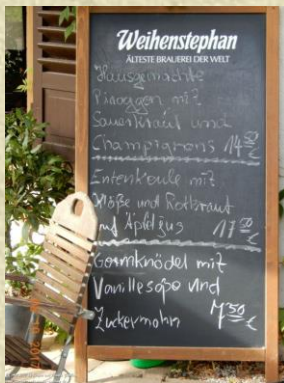 Weihenstephan
ÄLTESTE BRAUEREI DER WELT
Hausgemachte
Piroggen mit
Sauerkraut und
Champignons 14 50 €
Entenkeule mit
Klöße und Rotkraut
und Apfeljus 17 50 €
Germknödel mit
Vanillesoße und
Zuckermohn 7 50 €